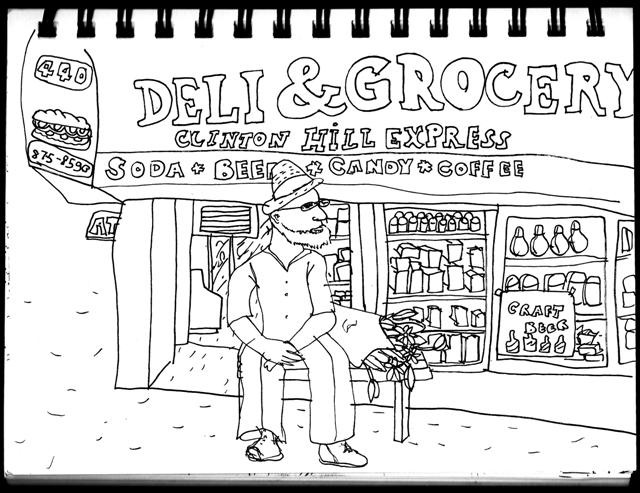 440
DELI & GROCERY
CLINTON HILL EXPRESS
875-8590
SODA * BEER * CANDY * COFFEE
AT
CRAFT
BEER